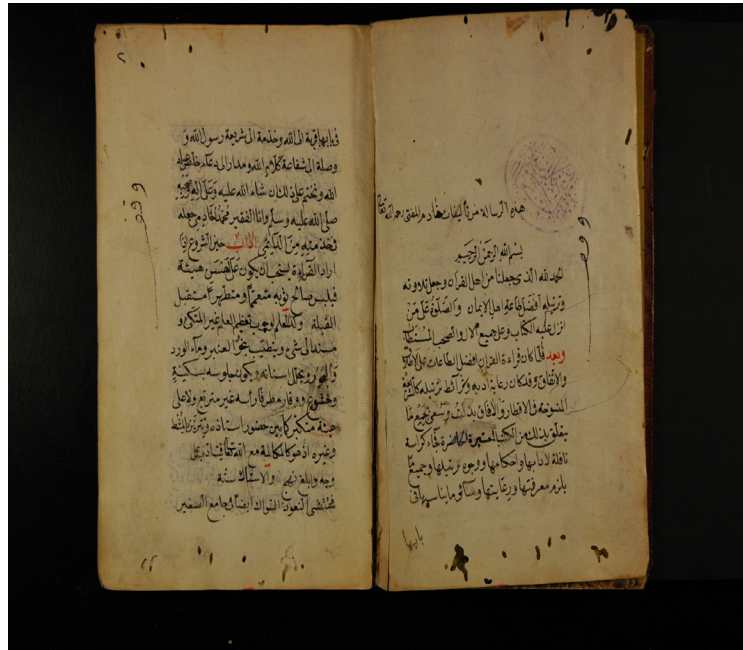 هذه الرسالة من تأليفات خادم المفتى رحمه الله تعالى
وقف
بسم الله الرحمن الرحيم
الحمد لله الذى جعلنا من اهل القرآن وجعل تلاوته
وترتيله افضل طاعة اهل الايمان والصلوة على من
انزل عليه الكتاب وعلى جميع الآل والصحب
وبعد فلما كان قراءة القرآن افضل الطاعات على الاطلاق
والاتفاق وقد كان رعاية ادبه وشرائط ترتيله
فى الاقطار والآفاق بذلت وسعى بجمع ما
يتعلق بذلك من الكتب المعتبرة فجاء كراسة
نافلة لادابها واحكامها ووجوه ترتيلها وجميع ما
يلزم معرفتها ورعايتها وسائر ما يناسبها فى
بابها
وقف
فى بابها قربة الى الله وخدمة الى شريعة رسول الله و
وصلة الى شفاعة كلام الله ومدار الى دعاء
الله ونختم على ذلك ان شاء الله عليه وعلى اله
صلى الله عليه وسلم وانا الفقير محمد
فخذ منيه من الدآئمى الآداب حين الشروع اذا
اراد القراءة يستحب ان يكون على احسن هيئة
فيلبس صالح ثوبه متعمما ومتطهرا مستقبل
القبلة وكذلك المعلم لوجوب تعظيم العلم غير المتكئ و
مستندا الى شىء ويتطيب بنحو العنبر وماء الورد
والبخور ويخلل اسنانه ويكون جلوسه بسكينة
وخشوع ووقار مطرقا رأسه غير متربع ولا على
هيئة متكبر كما بين حضور استاذه ويتزين بالمشط
وغيره اذ هو كالمكالمة مع الله تعالى
وجه وابلغ نهج والاستياك سنة
السواك ايضا فى جامع الصغير